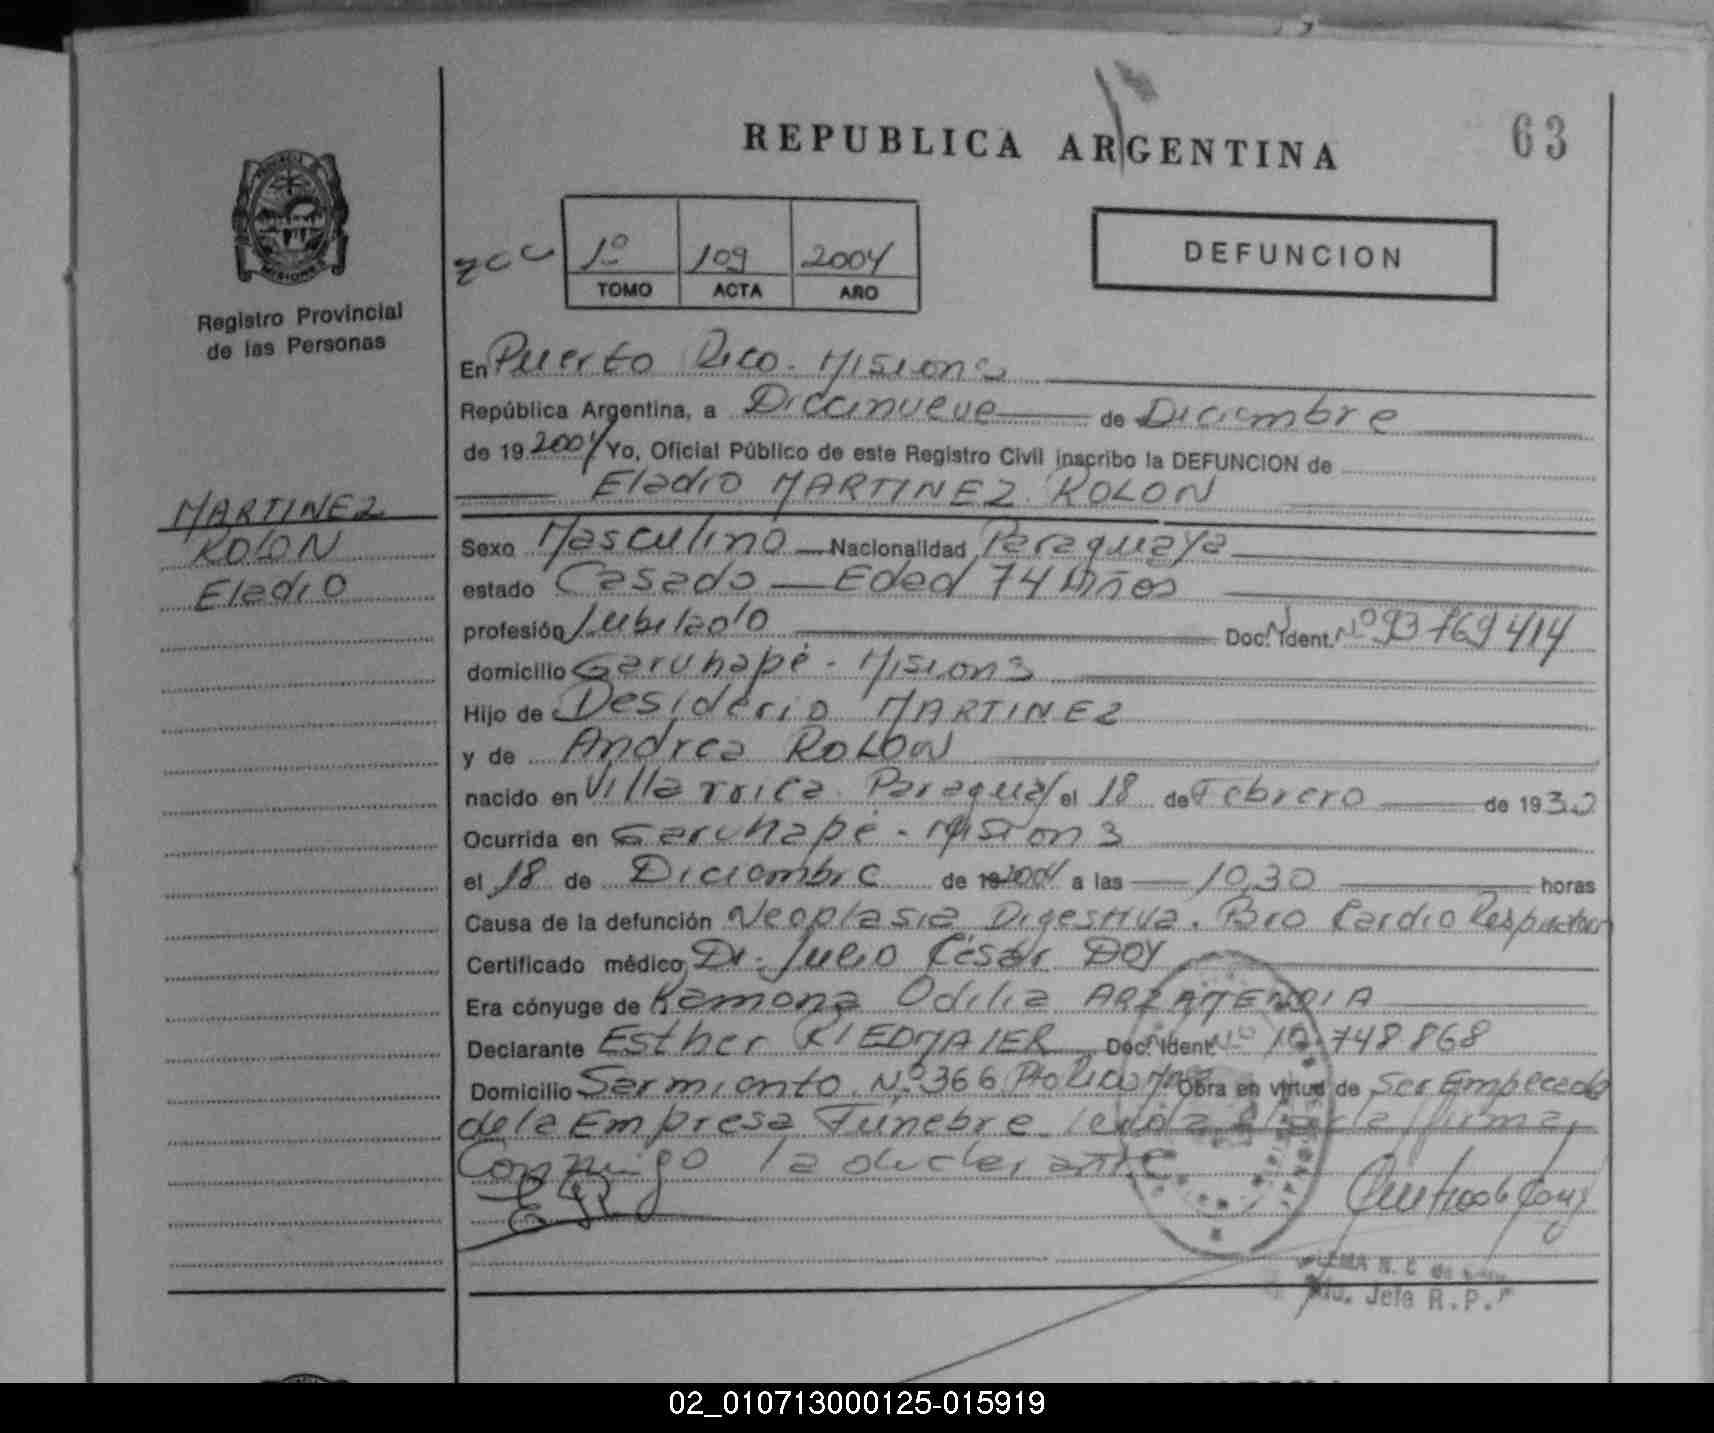 REPUBLICA ARGENTINA
63
1º 109 2004
TOMO ACTA AÑO
DEFUNCION
Registro Provincial
de las Personas
MARTINEZ
ROLON
Eladio
En Puerto Rico - Misiones
República Argentina, a Diecinueve de Diciembre
de 19 2004 Yo, Oficial Público de este Registro Civil inscribo la DEFUNCION de
Eladio MARTINEZ ROLON
Sexo Masculino Nacionalidad Paraguaya
estado Casado - Edad 74 Años
profesión Jubilado Doc. Ident. Nº 93769414
domicilio Garuhapé - Misiones
Hijo de Desiderio MARTINEZ
y de Andrea ROLON
nacido en Villa rrica Paraguay el 18 de Febrero de 1930
Ocurrida en Garuhapé - Misiones
el 18 de Diciembre de 2004 a las 10,30 horas
Causa de la defunción Neoplasia Digestiva. Cardio
Certificado médico Dr. Julio César DOY
Era cónyuge de Ramona Odilia ARZAMENDIA
Declarante Esther RIEDMAIER Doc. Ident. Nº 10.748868
Domicilio Sarmiento Nº 366 Pto Rico Obra en virtud de Ser Empleada
de la Empresa Fúnebre leída firma
Conmigo la declarante
Jefe R.P.
02_010713000125-015919